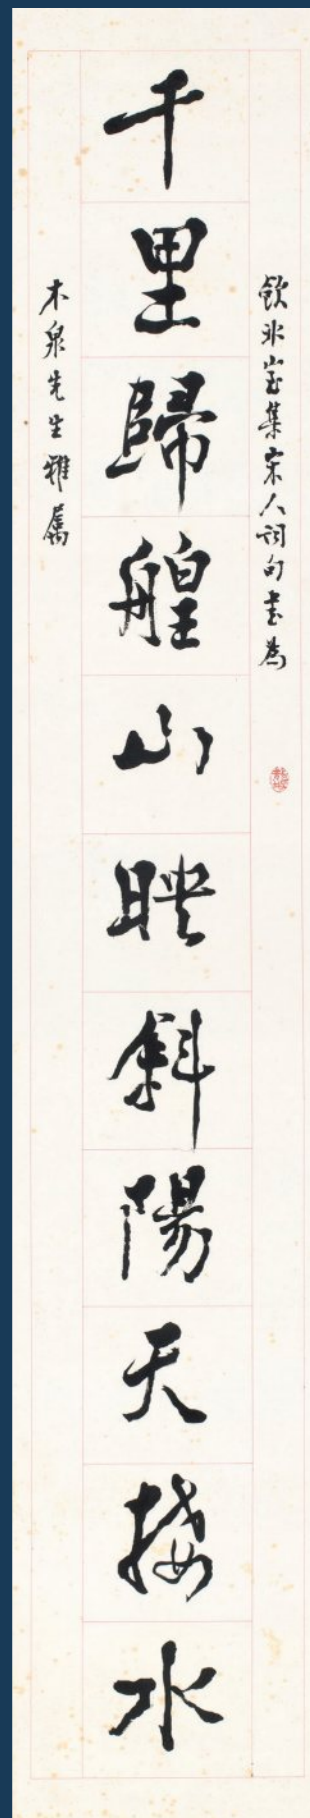 飲冰室集宋人詞句書為
千里歸艎山映斜陽天接水
木泉先生雅屬